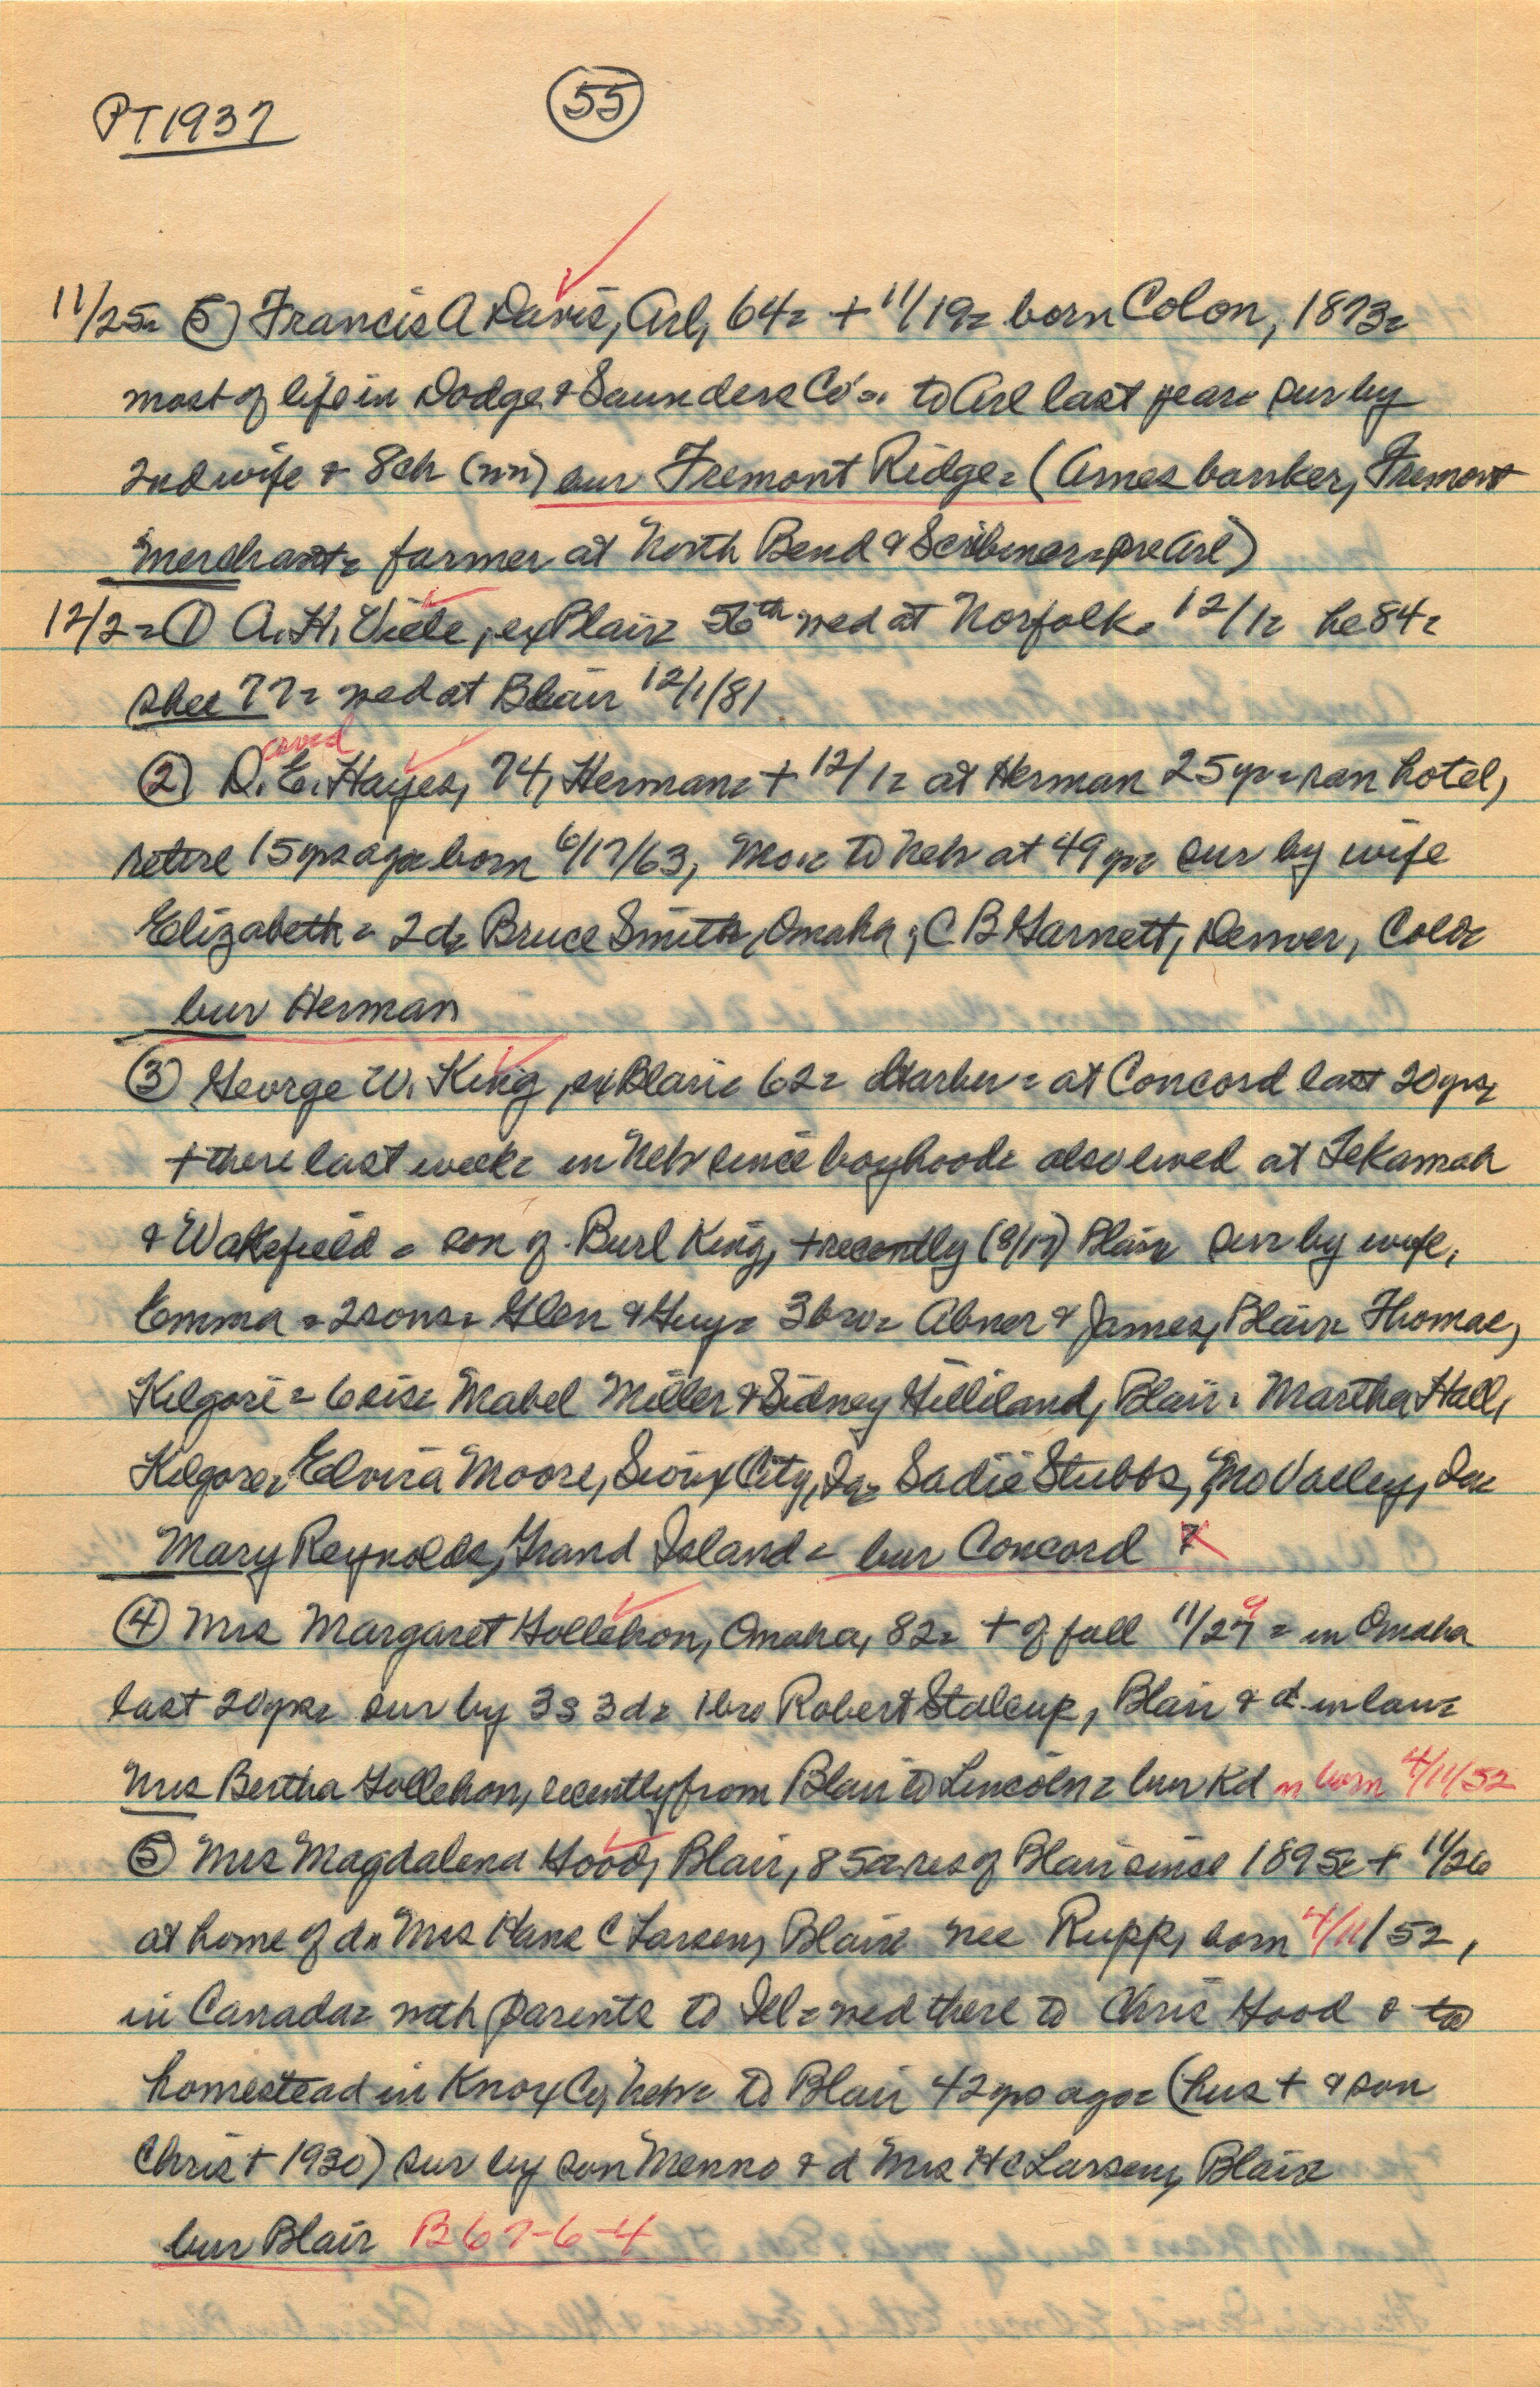 PT1937
55
11/25= 5 Francis A Davis, Arl, 64= + 11/19= born Colon, 1873=
most of life in Dodge & Saunders Co's. to Arl last year= sur by
2nd wife & 8ch (nn) bur Fremont Ridge= (Ames banker, Fremont
Merchant= farmer at North Bend & Scribner= pre Arl)
12/2= 1 A.H. Viele, ex Blair= 56th wed at Norfolk= 12/1= he 84=
shee 77= wed at Blair 12/1/81
2 D.E. Hayes, 74, Herman= + 12/1= at Herman 25yr= ran hotel,
retire 15yrs ago= born 6/17/63, Mo.= to Neb at 49yr= sur by wife
Elizabeth= 2d= Bruce Smith, Omaha; C B Garnett, Denver, Colo=
bur Herman
3 George W. King, ex Blair= 62= barber= at Concord last 20yrs=
+ there last week= in Neb since boyhood= also lived at Tekamah
& Wakefield= son of Burl King, + recently (8/17) Blair= sur by wife,
Emma= 2sons= Glen & Guy= 3bro= Abner & James, Blair= Thomas,
Kilgore= 6sis= Mabel Miller & Sidney Gilliland, Blair= Martha Hall,
Kilgore= Elvira Moore, Sioux City, Ia= Sadie Stubbs, Mo Valley, Ia=
Mary Reynolds, Grand Island= bur Concord
4 Mrs Margaret Gollehon, Omaha, 82= + of fall 11/27= in Omaha
last 20yrs= sur by 3s 3d= 1bro Robert Stalcup, Blair & d-in law=
Mrs Bertha Gollehon, recently from Blair to Lincoln= bur Kd born 4/11/52
5 Mrs Magdalena Hood, Blair, 85= res of Blair since 1895= + 11/26
at home of d= Mrs Hans C Larsen, Blair= nee Rupp, born 4/11/52,
in Canada= with parents to Ill= wed there to Chris Hood & to
homestead in Knox Co, Neb= to Blair 42yrs ago= (hus + & son
Chris + 1930) sur by son Menno & d Mrs H C Larsen, Blair=
bur Blair B67-6-4